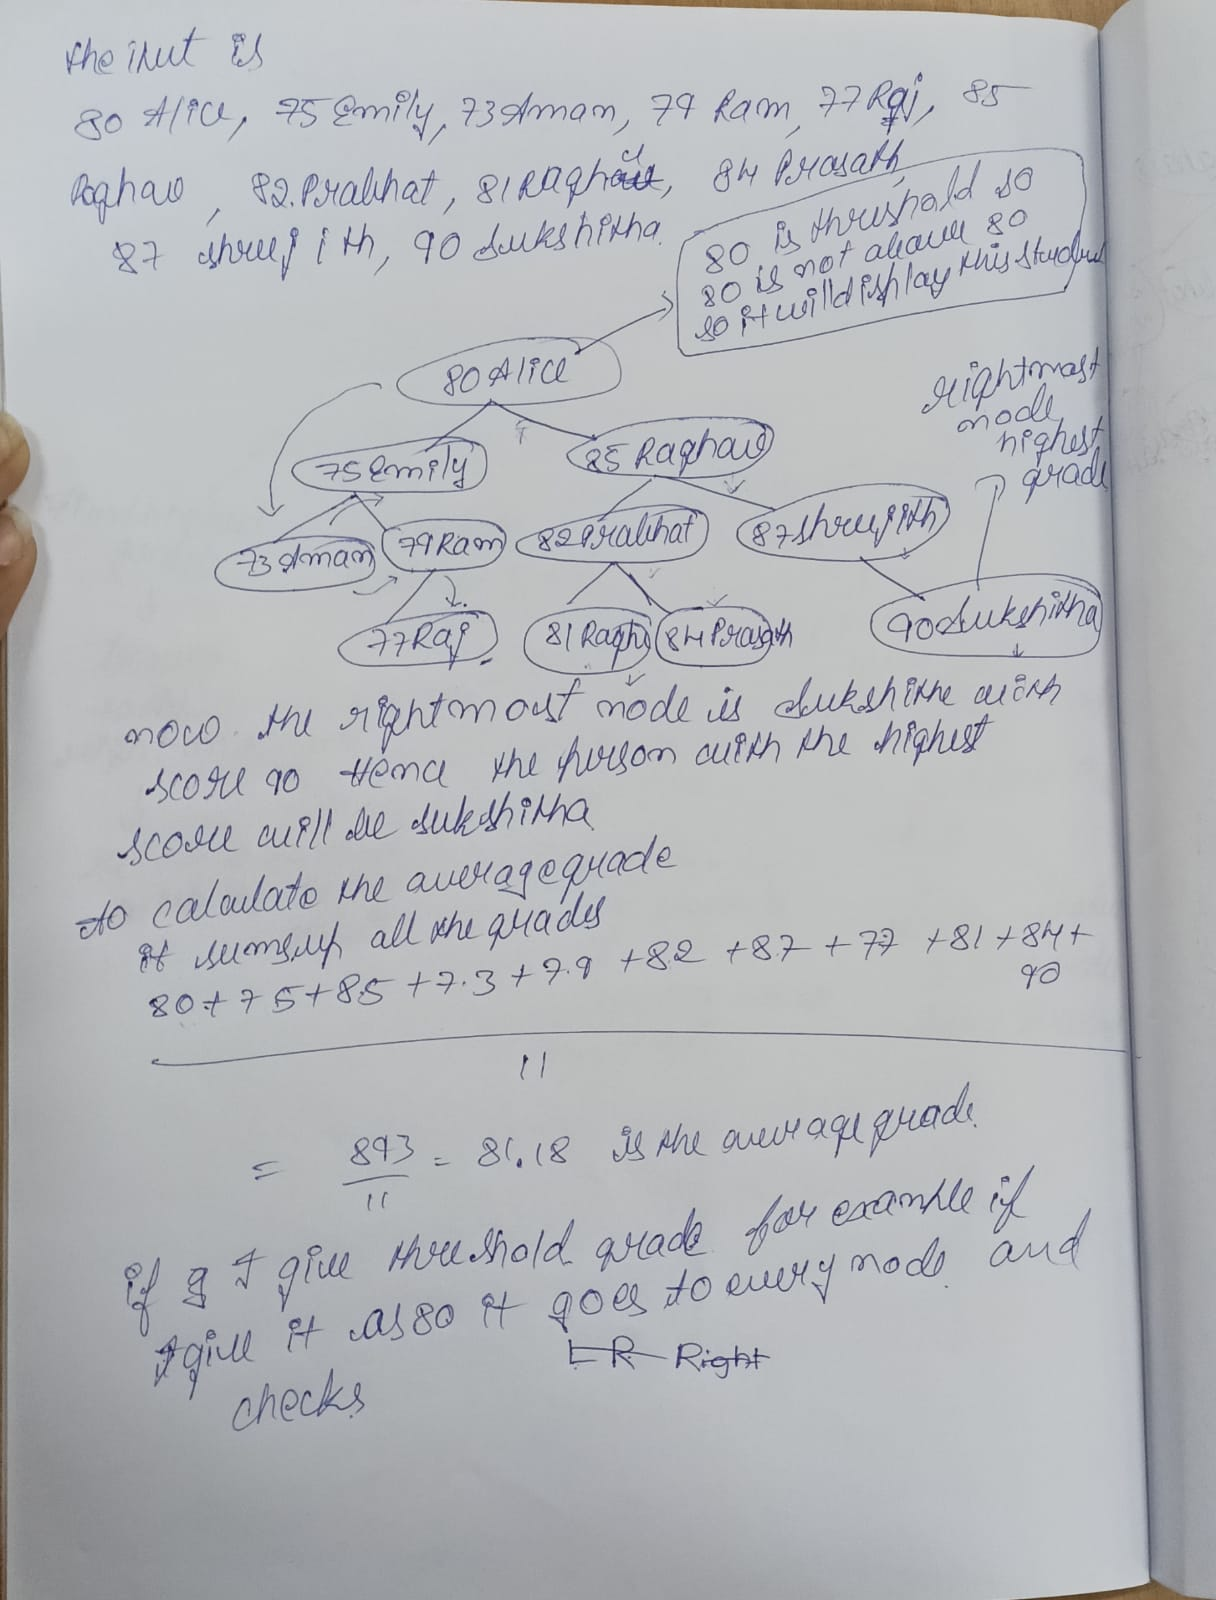 the inut is
80 Alice, 75 Emily, 73 Aman, 79 Ram, 77 Raj, 85
Raghav, 82 Prabhat, 81 Raghu, 84 Prasath,
87 Shrujith, 90 Sukshitha.
80 is threshold so
80 is not above 80
so it will display this student
80 Alice
rightmost
node
highest
grade
75 Emily
85 Raghav
73 Aman
79 Ram
82 Prabhat
87 Shrujith
77 Raj
81 Raghu
84 Prasath
90 Sukshitha
now the rightmost node is Sukshitha with
score 90 Hence the person with the highest
score will be Sukshitha
to calculate the average grade
it sumsup all the grades
80+75+85+73+79+82+87+77+81+84+
90
11
= 893 = 81.18 is the average grade.
11
if I give threshold grade for example if
I give it as 80 it goes to every node and
L R Right
checks